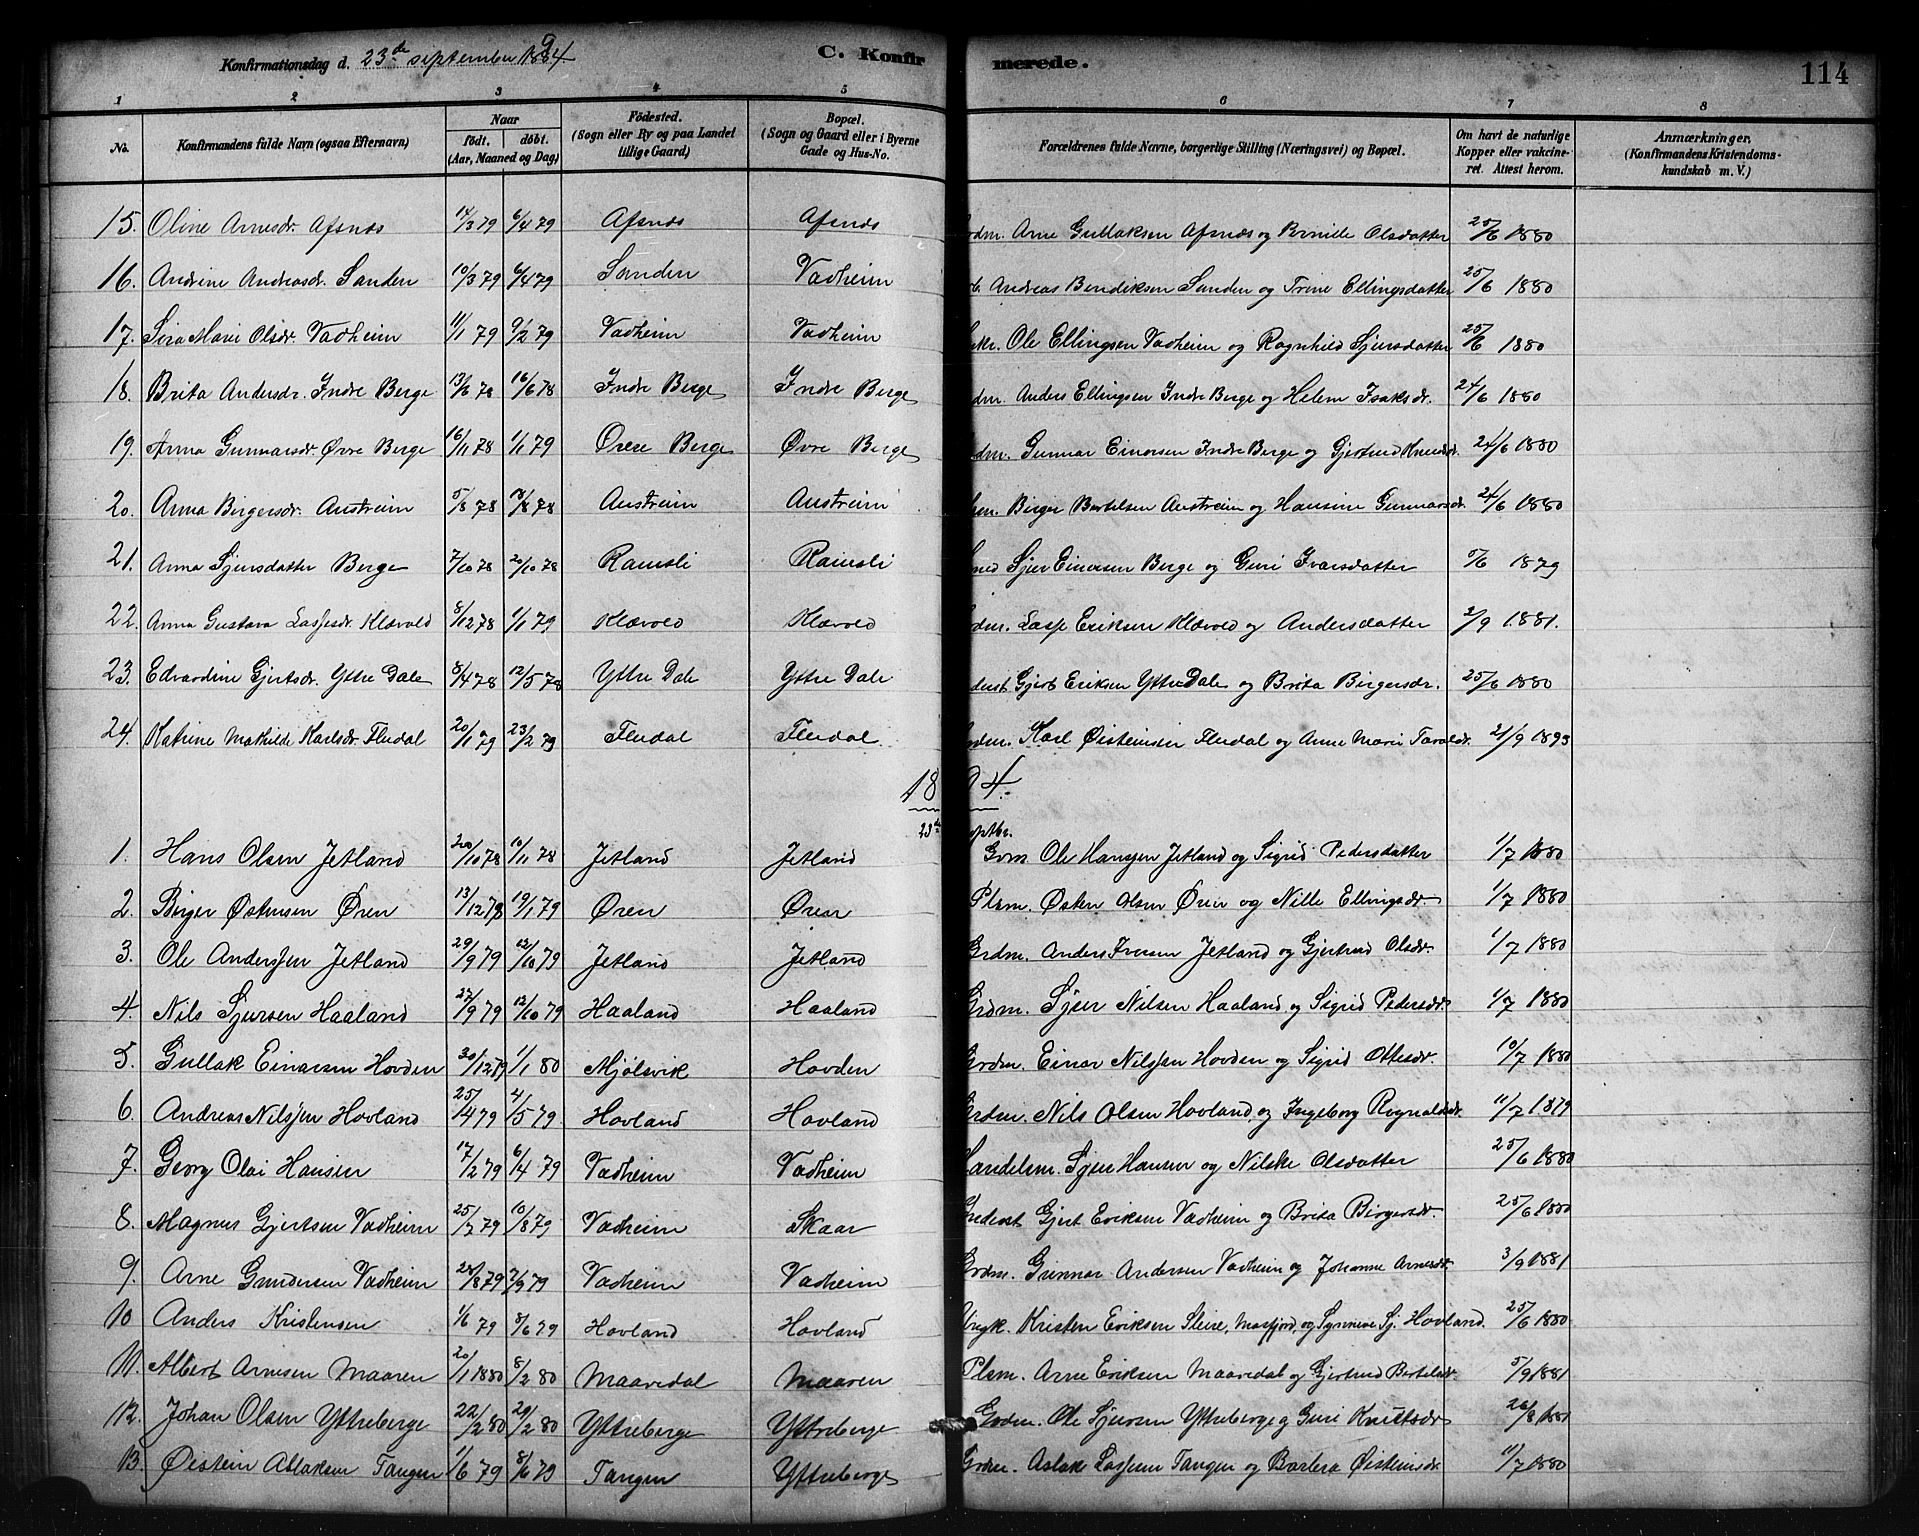 Konfirmationsdag d. 23de september 1894 C. Konfirmerede. 114
1 2 3 4 5 6 7 8
No. Konfirmandens fulde Navn (ogsaa Efternavn) Naar født. døbt. (Aar, Maaned og Dag) Fødested. (Sogn eller By og paa Landet tillige Gaard) Bopæl. (Sogn og Gaard eller i Byerne Gade og Hus-No. Forældrenes fulde Navne, borgerlige Stilling (Næringsvei) og Bopæl. Om havt de naturlige Kopper eller vakcineret. Attest herom. Anmærkninger. (Konfirmandens Kristendomskundskab m. V.)
15. Oline Arnesdr. Afsnæs 14/3 79 6/4 79 Afsnæs Afsnæs Arne Gullaksen Afsnæs og Pernille Olsdatter 25/6 1880
16. Andrine Andreasdr. Sanden 10/3 79 6/4 79 Sanden Vadheim Andreas Bendiksen Sanden og Trine Ellingsdatter 25/6 1880
17. Sira Marie Olsdr. Vadheim 11/1 79 9/2 79 Vadheim Vadheim Ole Ellingsen Vadheim og Ragnhild Sjursdatter 25/6 1880
18. Brita Andersdr. Indre Berge 13/6 78 16/6 78 Indre Berge Indre Berge Anders Ellingsen Indre Berge og Helene Isaksdr. 24/6 1880
19. Anna Gunnarsdr. Øvre Berge 16/11 78 1/1 79 Øvre Berge Øvre Berge Gunnar Einarsen Indre Berge og Gjertrud Knudsdr. 24/6 1880
20. Anna Birgersdr. Austreim 5/8 78 18/8 78 Austreim Austreim Birger Bertelsen Austreim og Hansine Gunnarsdr. 24/6 1880
21. Anna Sjursdatter Berge 7/10 78 20/10 78 Ramsli Ramsli Sjur Einarsen Berge og Guri Ivarsdatter 5/6 1879
22. Anna Gustava Lassesdr. Klævold 8/12 78 1/1 79 Klævold Klævold Lasse Eriksen Klævold og Andersdatter 2/9 1881.
23. Edvardine Gjertsdr. Yttre Dale 8/4 78 12/5 78 Yttre Dale Yttre Dale Gjert Eriksen Yttre Dale og Brita Birgersdr. 25/6 1880
24. Katrine Mathilde Karlsdr. Fludal 20/1 79 23/2 79 Fludal Fludal Karl Øisteinsen Fludal og Anne Marie Taraldr. 21/9 1893
1894.
23de septbr.
1. Hans Olsen Jetland 20/10 78 10/11 78 Jetland Jetland Grm Ole Hanssen Jetland og Sigrid Pedersdatter 1/7 1880
2. Birger Østensen Øren 13/12 78 19/1 79 Øren Øren Plsm. Østen Olsen Øren og Nille Ellingsdr 1/7 1880
3. Ole Anderssen Jetland 29/9 79 12/10 79 Jetland Jetland Grdm. Anders Iversen Jetland og Gjertrud Olsdr. 1/7 1880
4. Nils Sjursen Haaland 27/9 79 12/10 79 Haaland Haaland Grdm. Sjur Nilsen Haaland og Sigrid Pedersdr. 1/7 1880
5. Gullak Einarsen Hovden 30/12 79 1/1 80 Mjølsvik Hovden Grdm. Einar Nilssen Hovden og Sigrid Ottesdr. 10/7 1880
6. Andreas Nilssen Hovland 25/4 79 4/5 79 Hovland Hovland Grdm. Nils Olsen Hovland og Ingeborg Rognaldsdr. 11/7 1879
7. Georg Olai Hansen 17/2 79 6/4 79 Vadheim Vadheim Handelsm. Sjur Hansen og Nilske Olsdatter 25/6 1880
8. Magnus Gjertsen Vadheim 25/7 79 10/8 79 Vadheim Skaar Inderst Gjert Eriksen Vadheim og Brita Birgersdr. 25/6 1880
9. Arne Gundersen Vadheim 28/8 79 7/9 79 Vadheim Vadheim Grdm. Gunnar Andersen Vadheim og Johanne Arnesdr. 3/9 1881
10 Anders Kristensen 1/6 79 8/6 79 Hovland Hovland Ungk. Kristen Eriksen Sleire, Masfjord, og Synneve Sj. Hovland. 25/6 1880
11. Albert Arnesen Maaren 20/1 1880 8/2 80 Maaredal Maaren Plsm. Arne Eriksen Maaredal og Gjertrud Bertelsdr. 5/9 1881
12. Johan Olsen Yttreberge 22/2 80 29/2 80 Yttreberge Yttreberge Grdm. Ole Sjursen Yttreberge og Guri Knutsdr 26/8 1881
13. Øistein Aslaksen Tangen 1/6 79 8/6 79 Tangen Yttreberge Grdm. Aslak Lassesen Tangen og Barbera Øisteinsdr. 11/7 1880